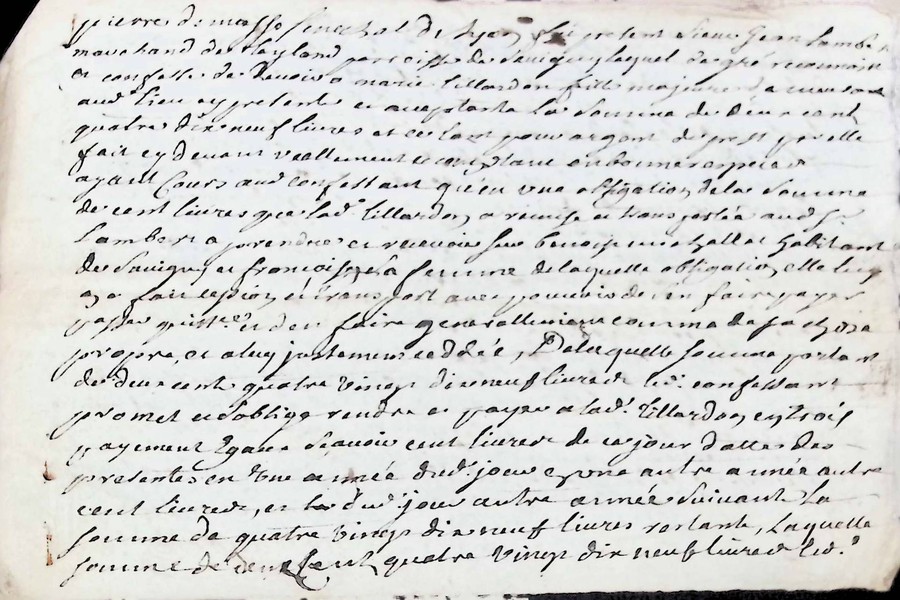 pierre de masso senechal de lyon fut present sieur Jean Lambert
marchand de Tayland parroisse de Savigny lequel de gre reconnoit
et confesse de devoir a marie Tillardon fille majeure
aud. lieu cy presente et acceptante la somme de deux cent
quatre dix neuf livres et ce tant pour argent de prest par elle
fait cy devant reallement contant en bonne espece
ayant Cours aud confessant qu'en une obligation de la somme
de cent livres que lad. Tillardon a remise et transportée aud Sr
Lambert a prendre et recevoir sur benoist habitant
de Savigny et francoise sa femme de laquelle obligation elle luy
en a fait cession et transport avec pouvoir de s'en faire payer
passer quitt. et d'en faire generallement comme de sa chose
propre, et a luy justement ceddée, De laquelle somme portant
de deux cent quatre vingt dix neuf livres led. confessant
promet et s'oblige rendre et payer a lad. Tillardon en trois
payement Egaux Scavoir cent livres de ce jour d'atte des
presentes en une année dud. jour en une autre année autre
cent livres, et dud. jour autre année suivant La
somme de quatre vingt dix neuf livres restante, Laquelle
somme de deux Cent quatre vingt dix neuf livres led.